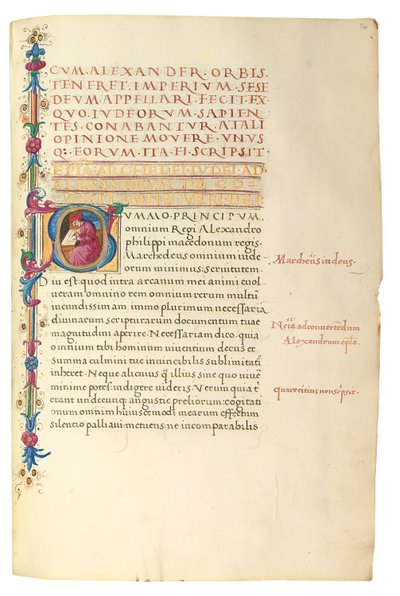 CVM ALEXANDER ORBIS
TENERET IMPERIVM SESE
DEVM APPELLARI FECIT EX
QVO IVDEORVM SAPIEN
TES CONABANTVR A TALI
OPINIONE MOVERE VNVS
Q: EORVM ITA EI SCRIPSIT
SVMMO PRINCIPVM
omnium Regi Alexandro
philippi macedonum regis
Marchedeus omnium iude
orum minimus: servitutem
Diu est quod intra arcanum mei animi cvol
veram omnino rem omnium rerum multũ
iucundissimam imo plurimum necessaria
divinarum scripturarum documentum tuae
magnitudini aperire. Necessario dico. quia
omnium tibi hominum viventium decus et
summa culmini tue invincibilis sublimitati
inheret. Neque alicuius
minime potest indigere videris. Verum quia
erant undecunq; angustie preliorum: cogitati
onum omnium huiuscemodi mearum effectum
silentio palliavi: metuens: ne incomparabilis
Marcheus iudeus.
ad convertedum
Alexandrum
quare citius non scripsit.